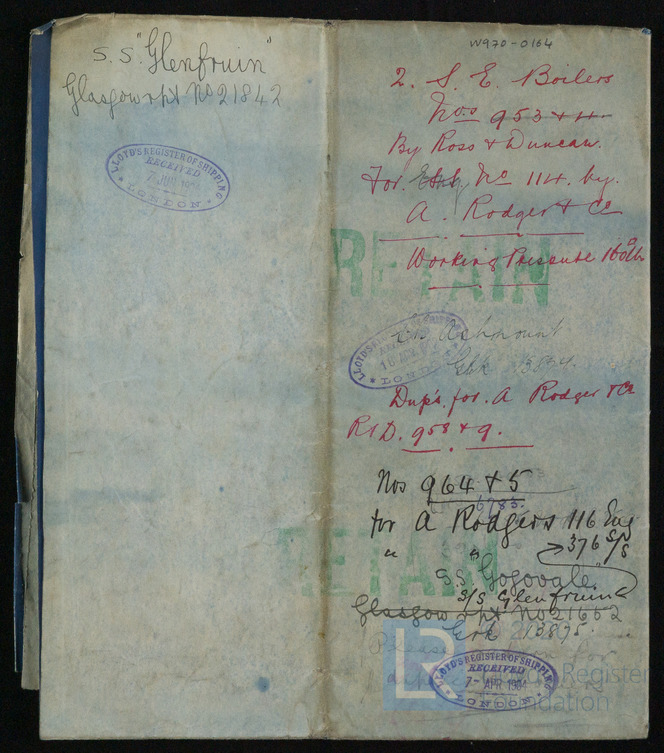 S.S. "Glenfruin"
Glasgow rpt No 21842
LLOYD'S REGISTER OF SHIPPING
RECEIVED
LONDON
W970-0164
2. S. E. Boilers
Nos 953 + 4
By Ross & Duncan.
For. No 114. by.
A. Rodger & Co
RETAIN
Working Pressure 160 lb
Ashmount
LLOYD'S REGISTER OF SHIPPING
LONDON
Grk 13834
Dup's. for. A Rodger & Co
R & D. 958 & 9.
Nos 964 & 5
6783
for A Rodgers 116 Eng
" " 376 S/S
RETAIN
S.S. "Gogovale"
S/S Glenfruin
Glasgow rpt No 21662
Grk 13875.
Please for
LLOYD'S REGISTER OF SHIPPING
RECEIVED
7- APR 1904
LONDON
LR
Lloyd's Register
Foundation